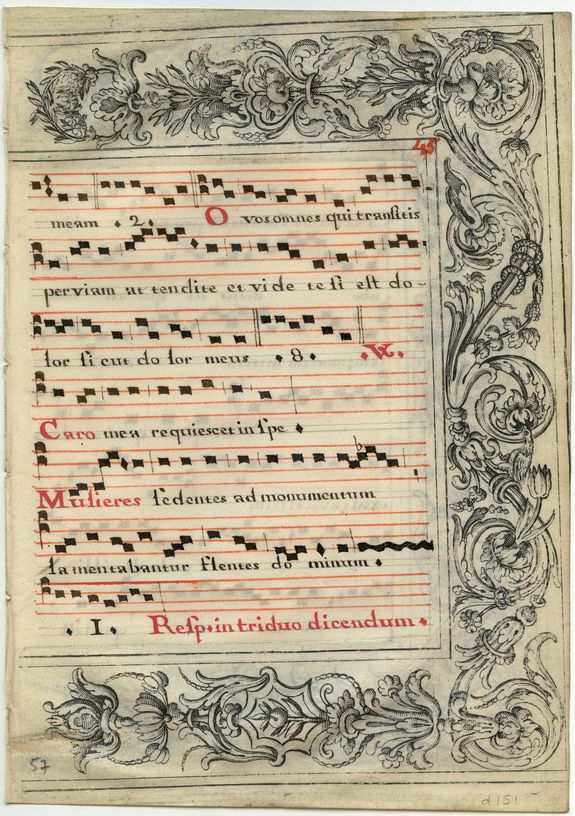 45
meam . 2 . O vos omnes qui transitis
per viam at tendite et vi de te si est do -
lor si cut do lor meus . 8 . V.
Caro mea requiescet in spe .
Mulieres sedentes ad monumentum
la mentabantur flentes do minum .
. I . Resp. in triduo dicendum .
57
d151